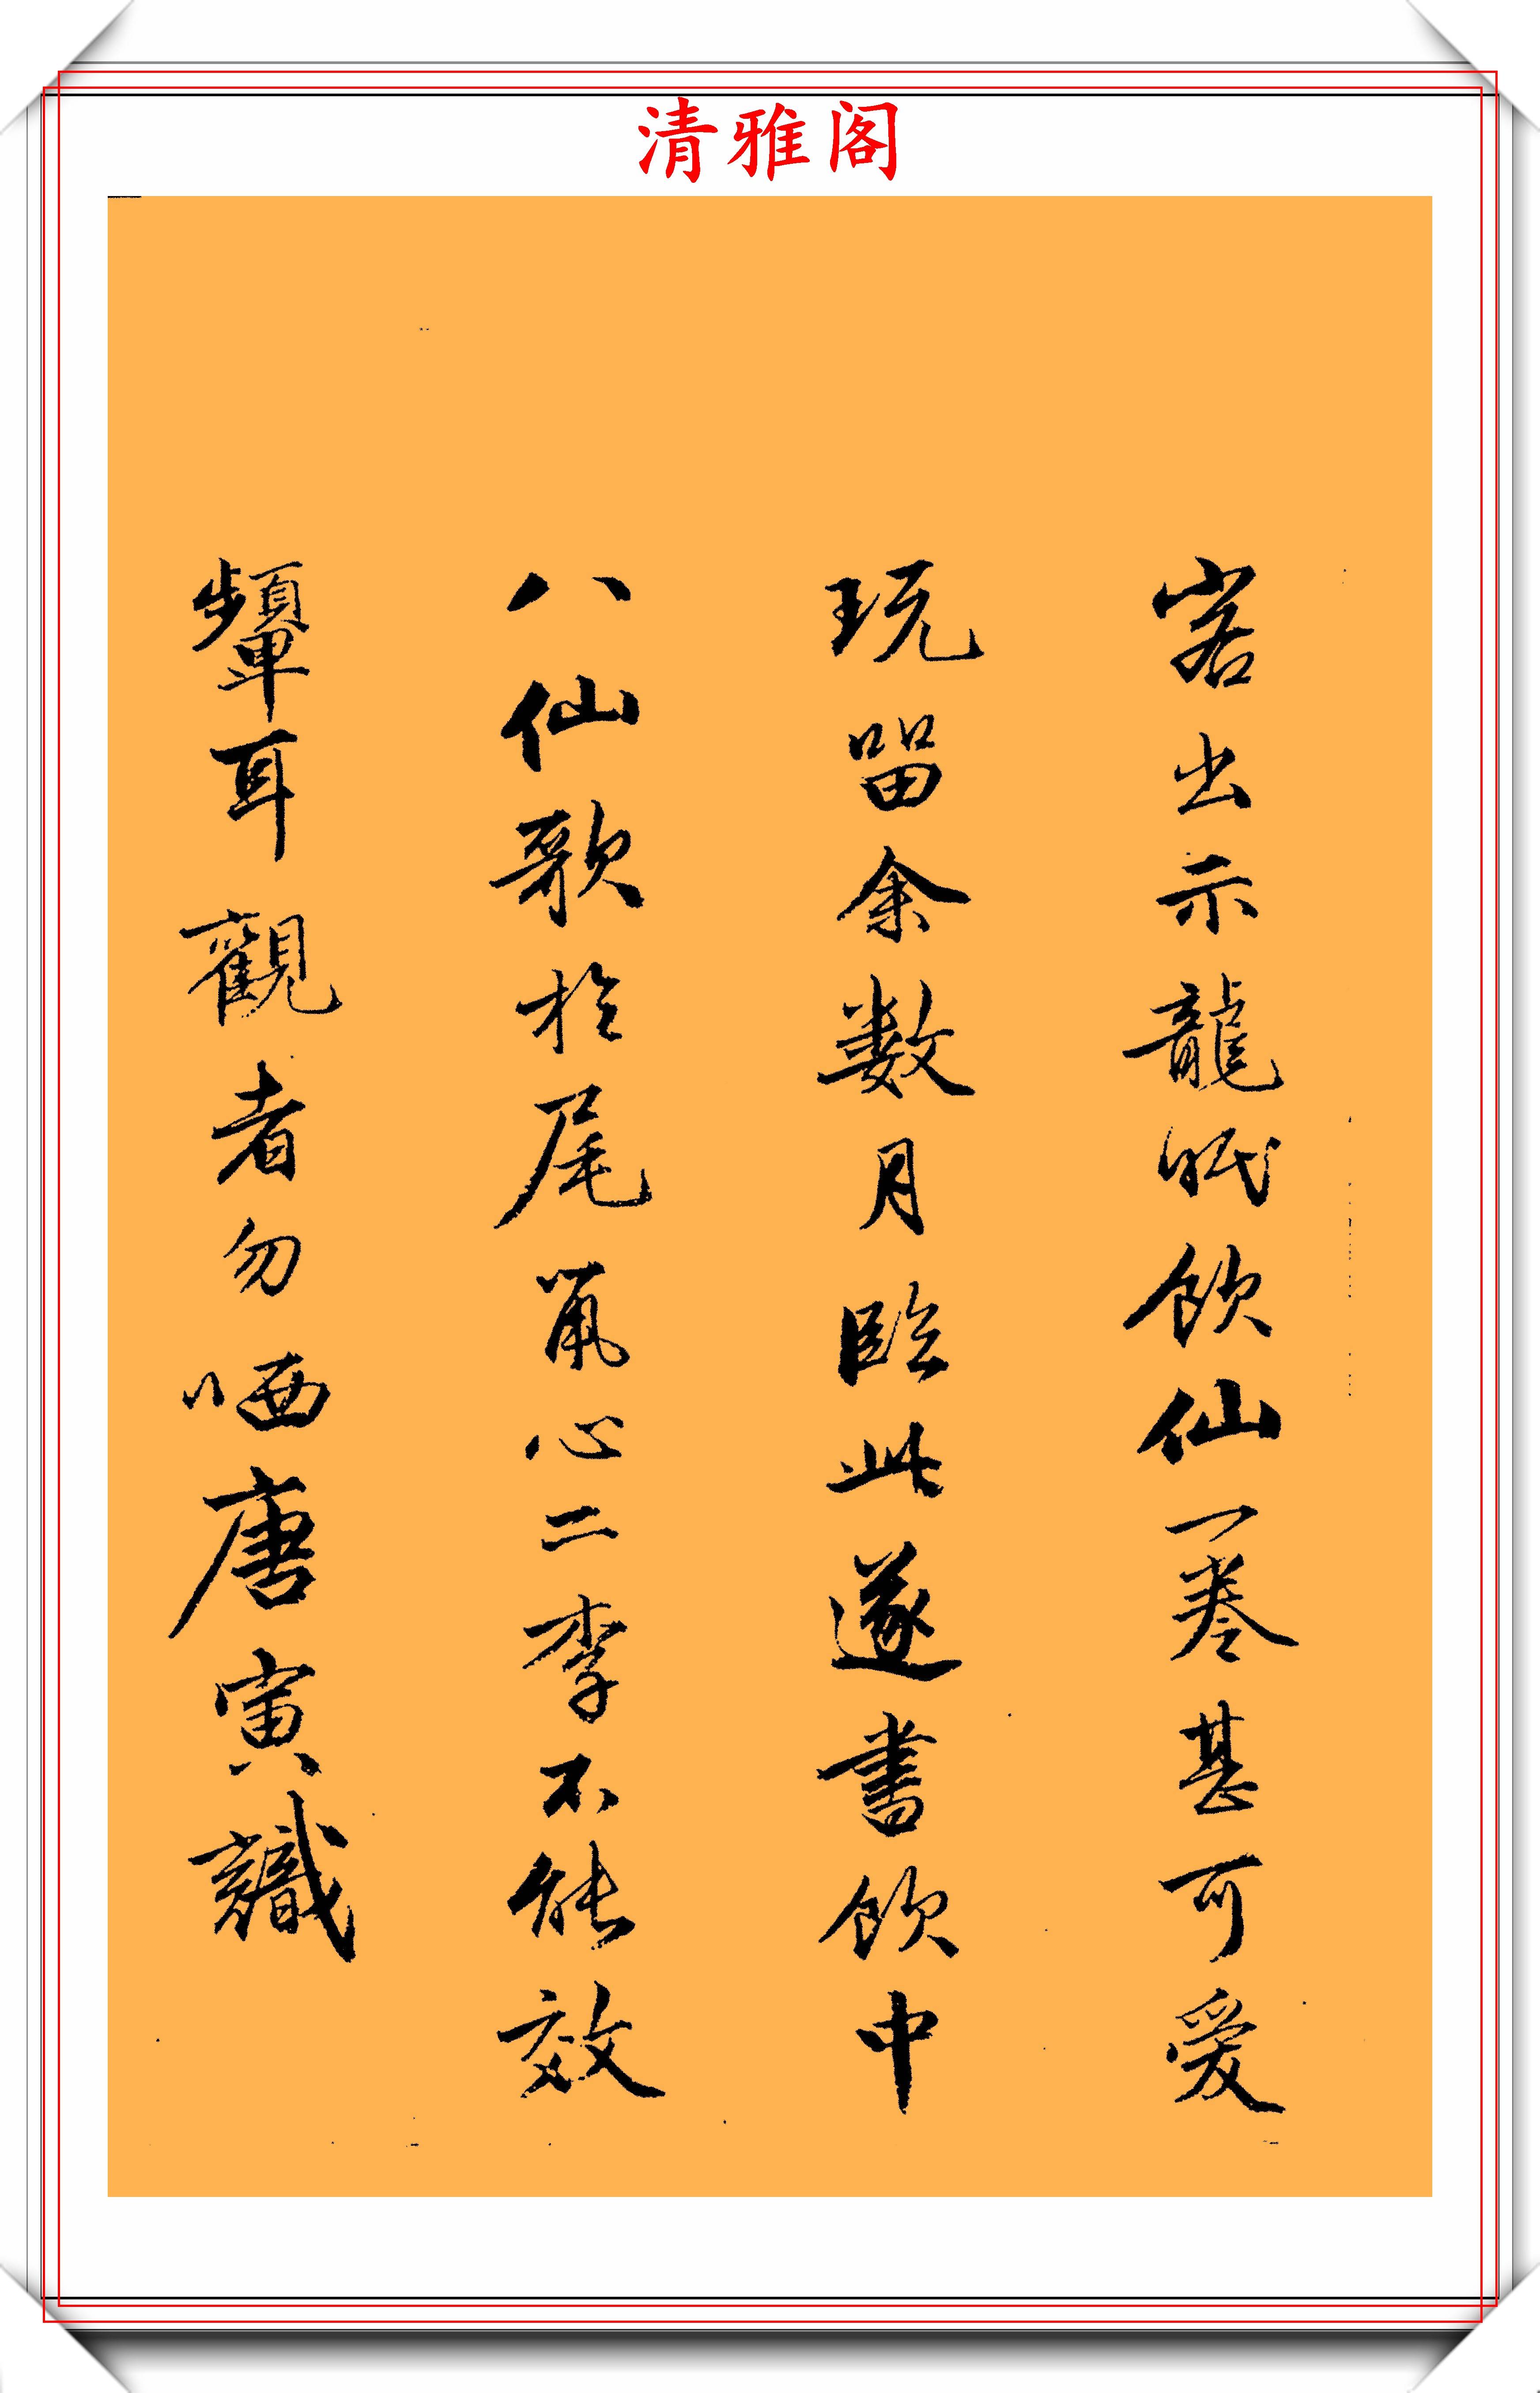 清雅阁
客出示龍眠飲仙一卷甚可愛
玩留余數月臨此遂書飲中
八仙歌於尾第心二李不能效
顰耳觀者勿哂唐寅識